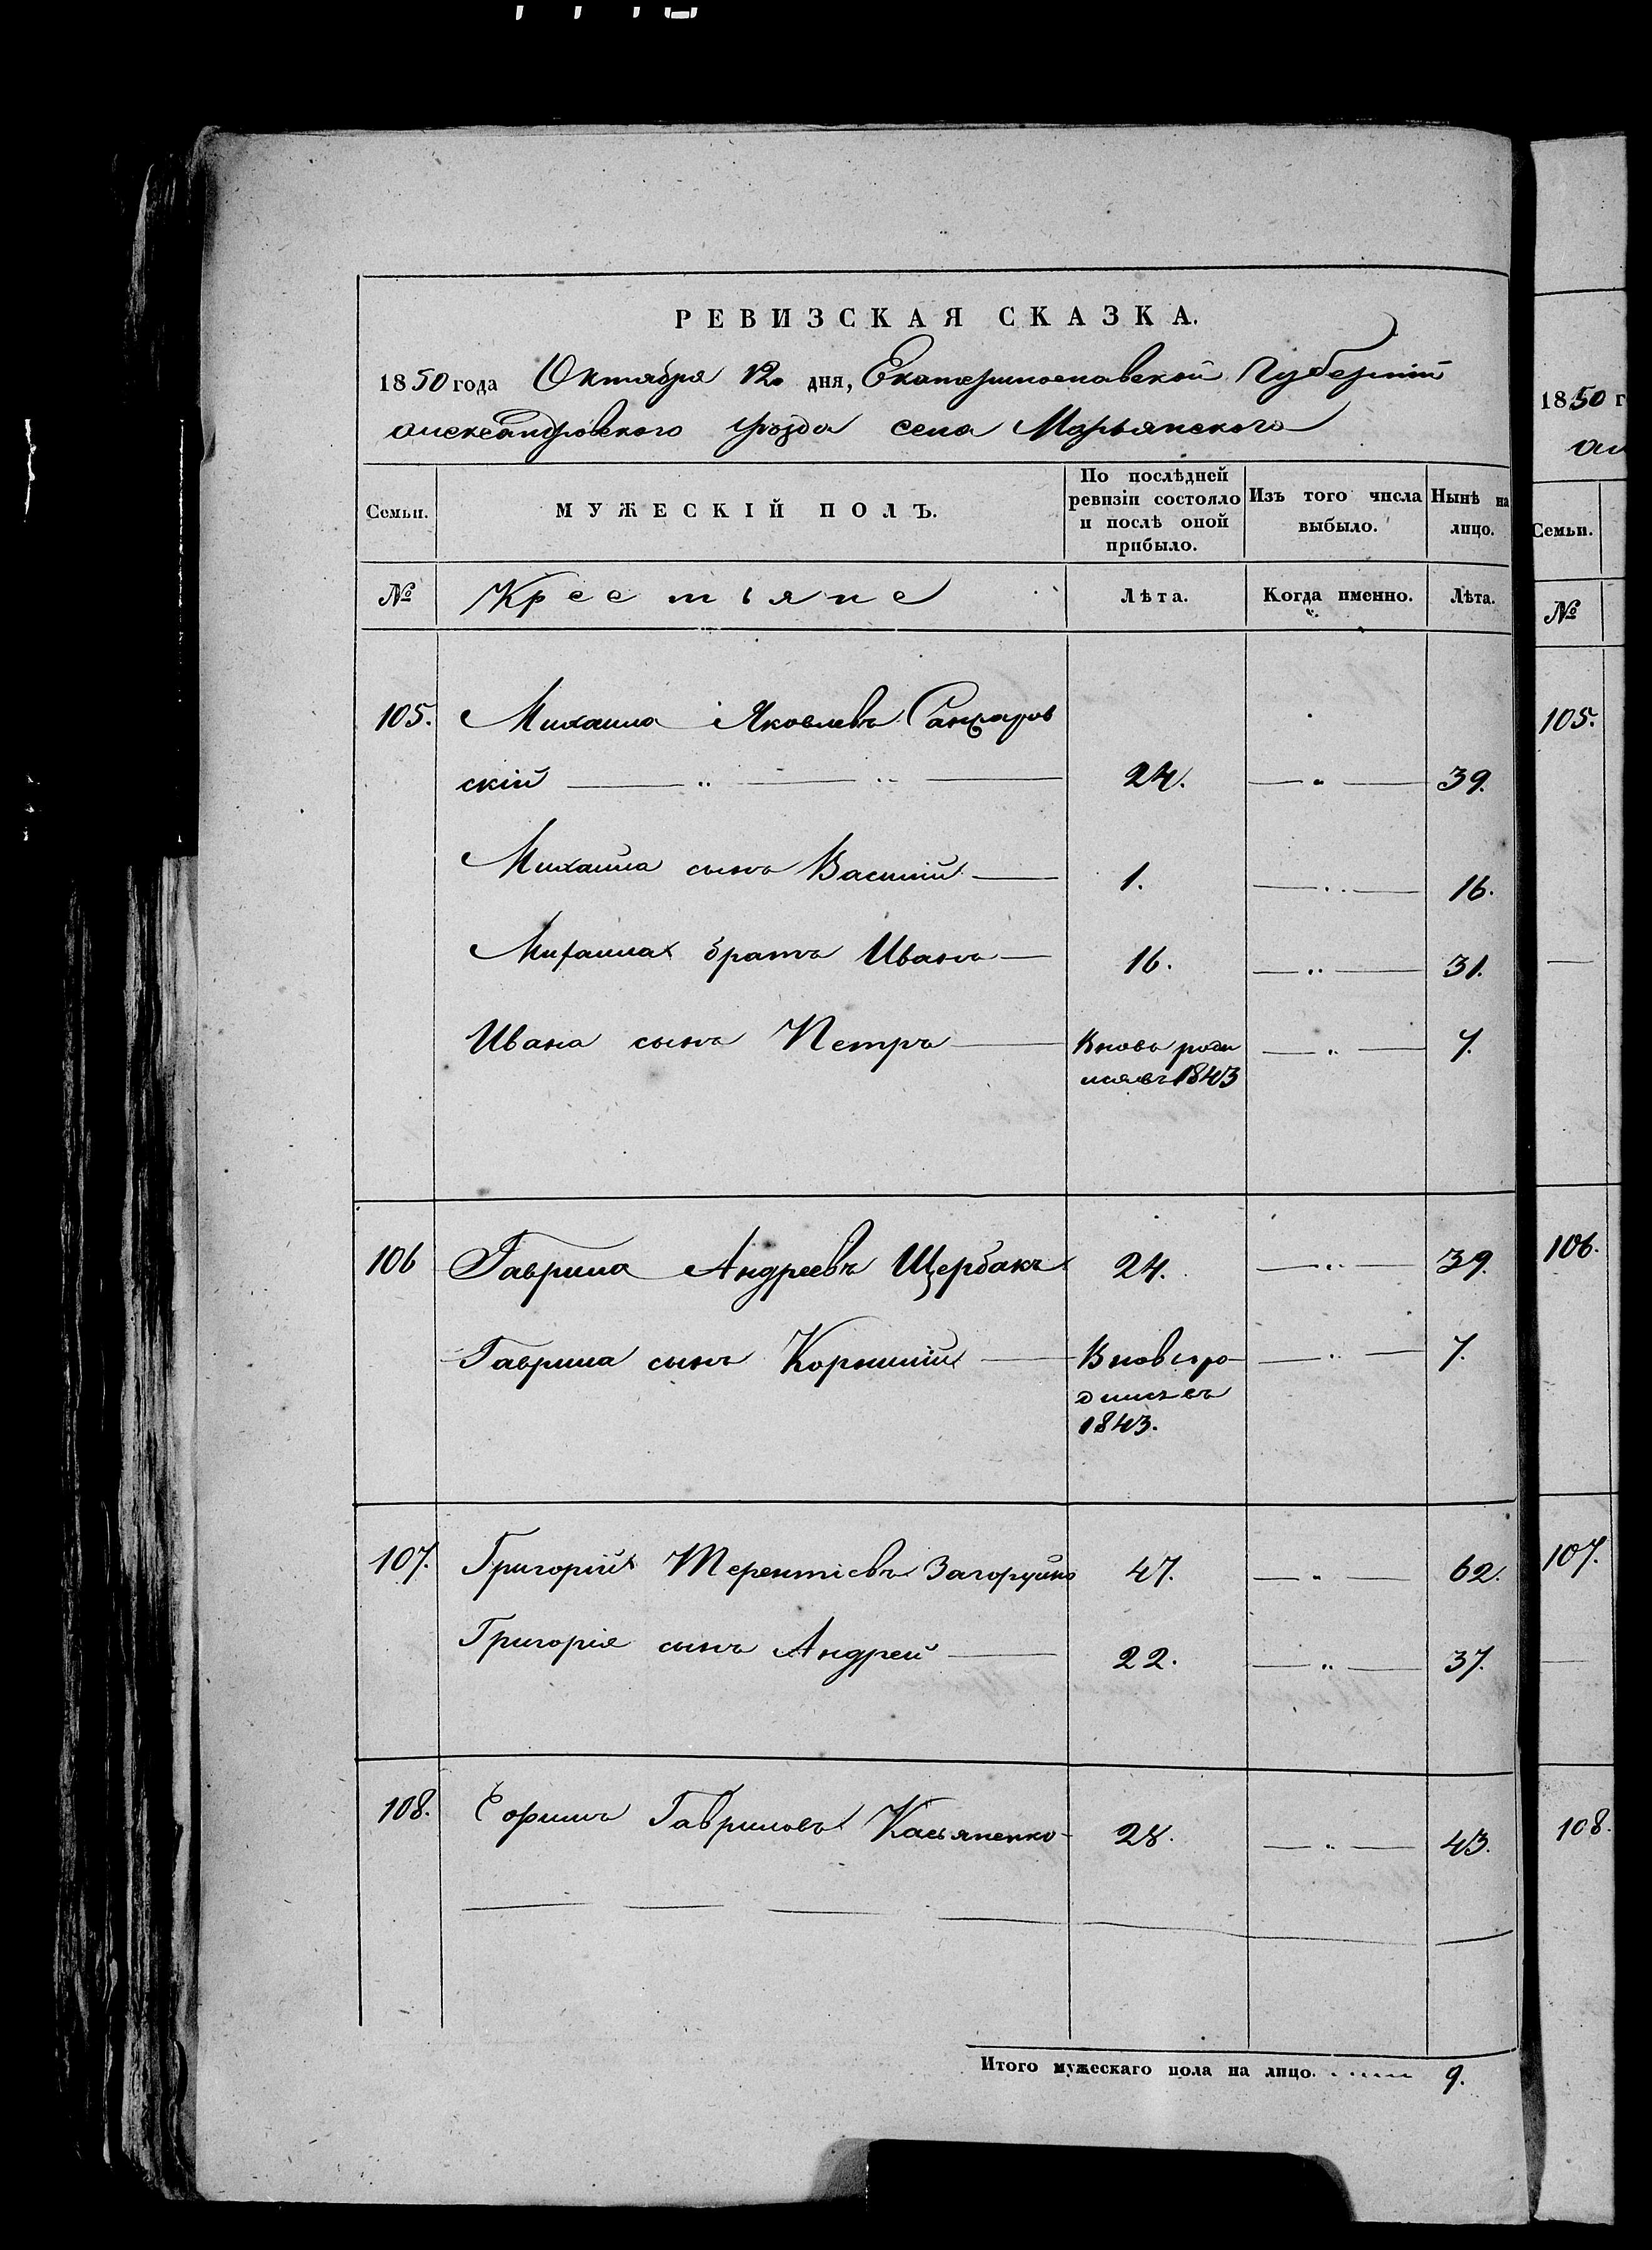 РЕВИЗСКАЯ СКАЗКА.
1850 года Октября 12 дня, Екатеринославской Губерніи
Александровскаго уѣзда села Марьянскаго
Семьи. МУЖЕСКІЙ ПОЛЪ. По послѣдней ревизіи состояло и послѣ оной прибыло. Изъ того числа выбыло. Нынѣ на лицо.
№ Крестьяне Лѣта. Когда именно. Лѣта.
105. Михаила Яковлевъ
скій 24. 39.
Михаила сынъ Василій 1. 16.
Михаила братъ Иванъ 16. 31.
Ивана сынъ Петръ Вновь роди 7.
лся въ 1843
106 Гаврила Андреевъ Щербакъ 24. 39.
Гаврила сынъ Корнилій Вновь ро 7.
дился въ
1843.
107. Григорій Терентіевъ Загоруйко 47. 62.
Григорія сынъ Андрей 22. 37.
108. Ефимъ Гавриловъ Касьяненко 28. 43.
Итого мужескаго пола на лицо. 9.
1850 г
Семьи.
№
105.
106.
107.
108.